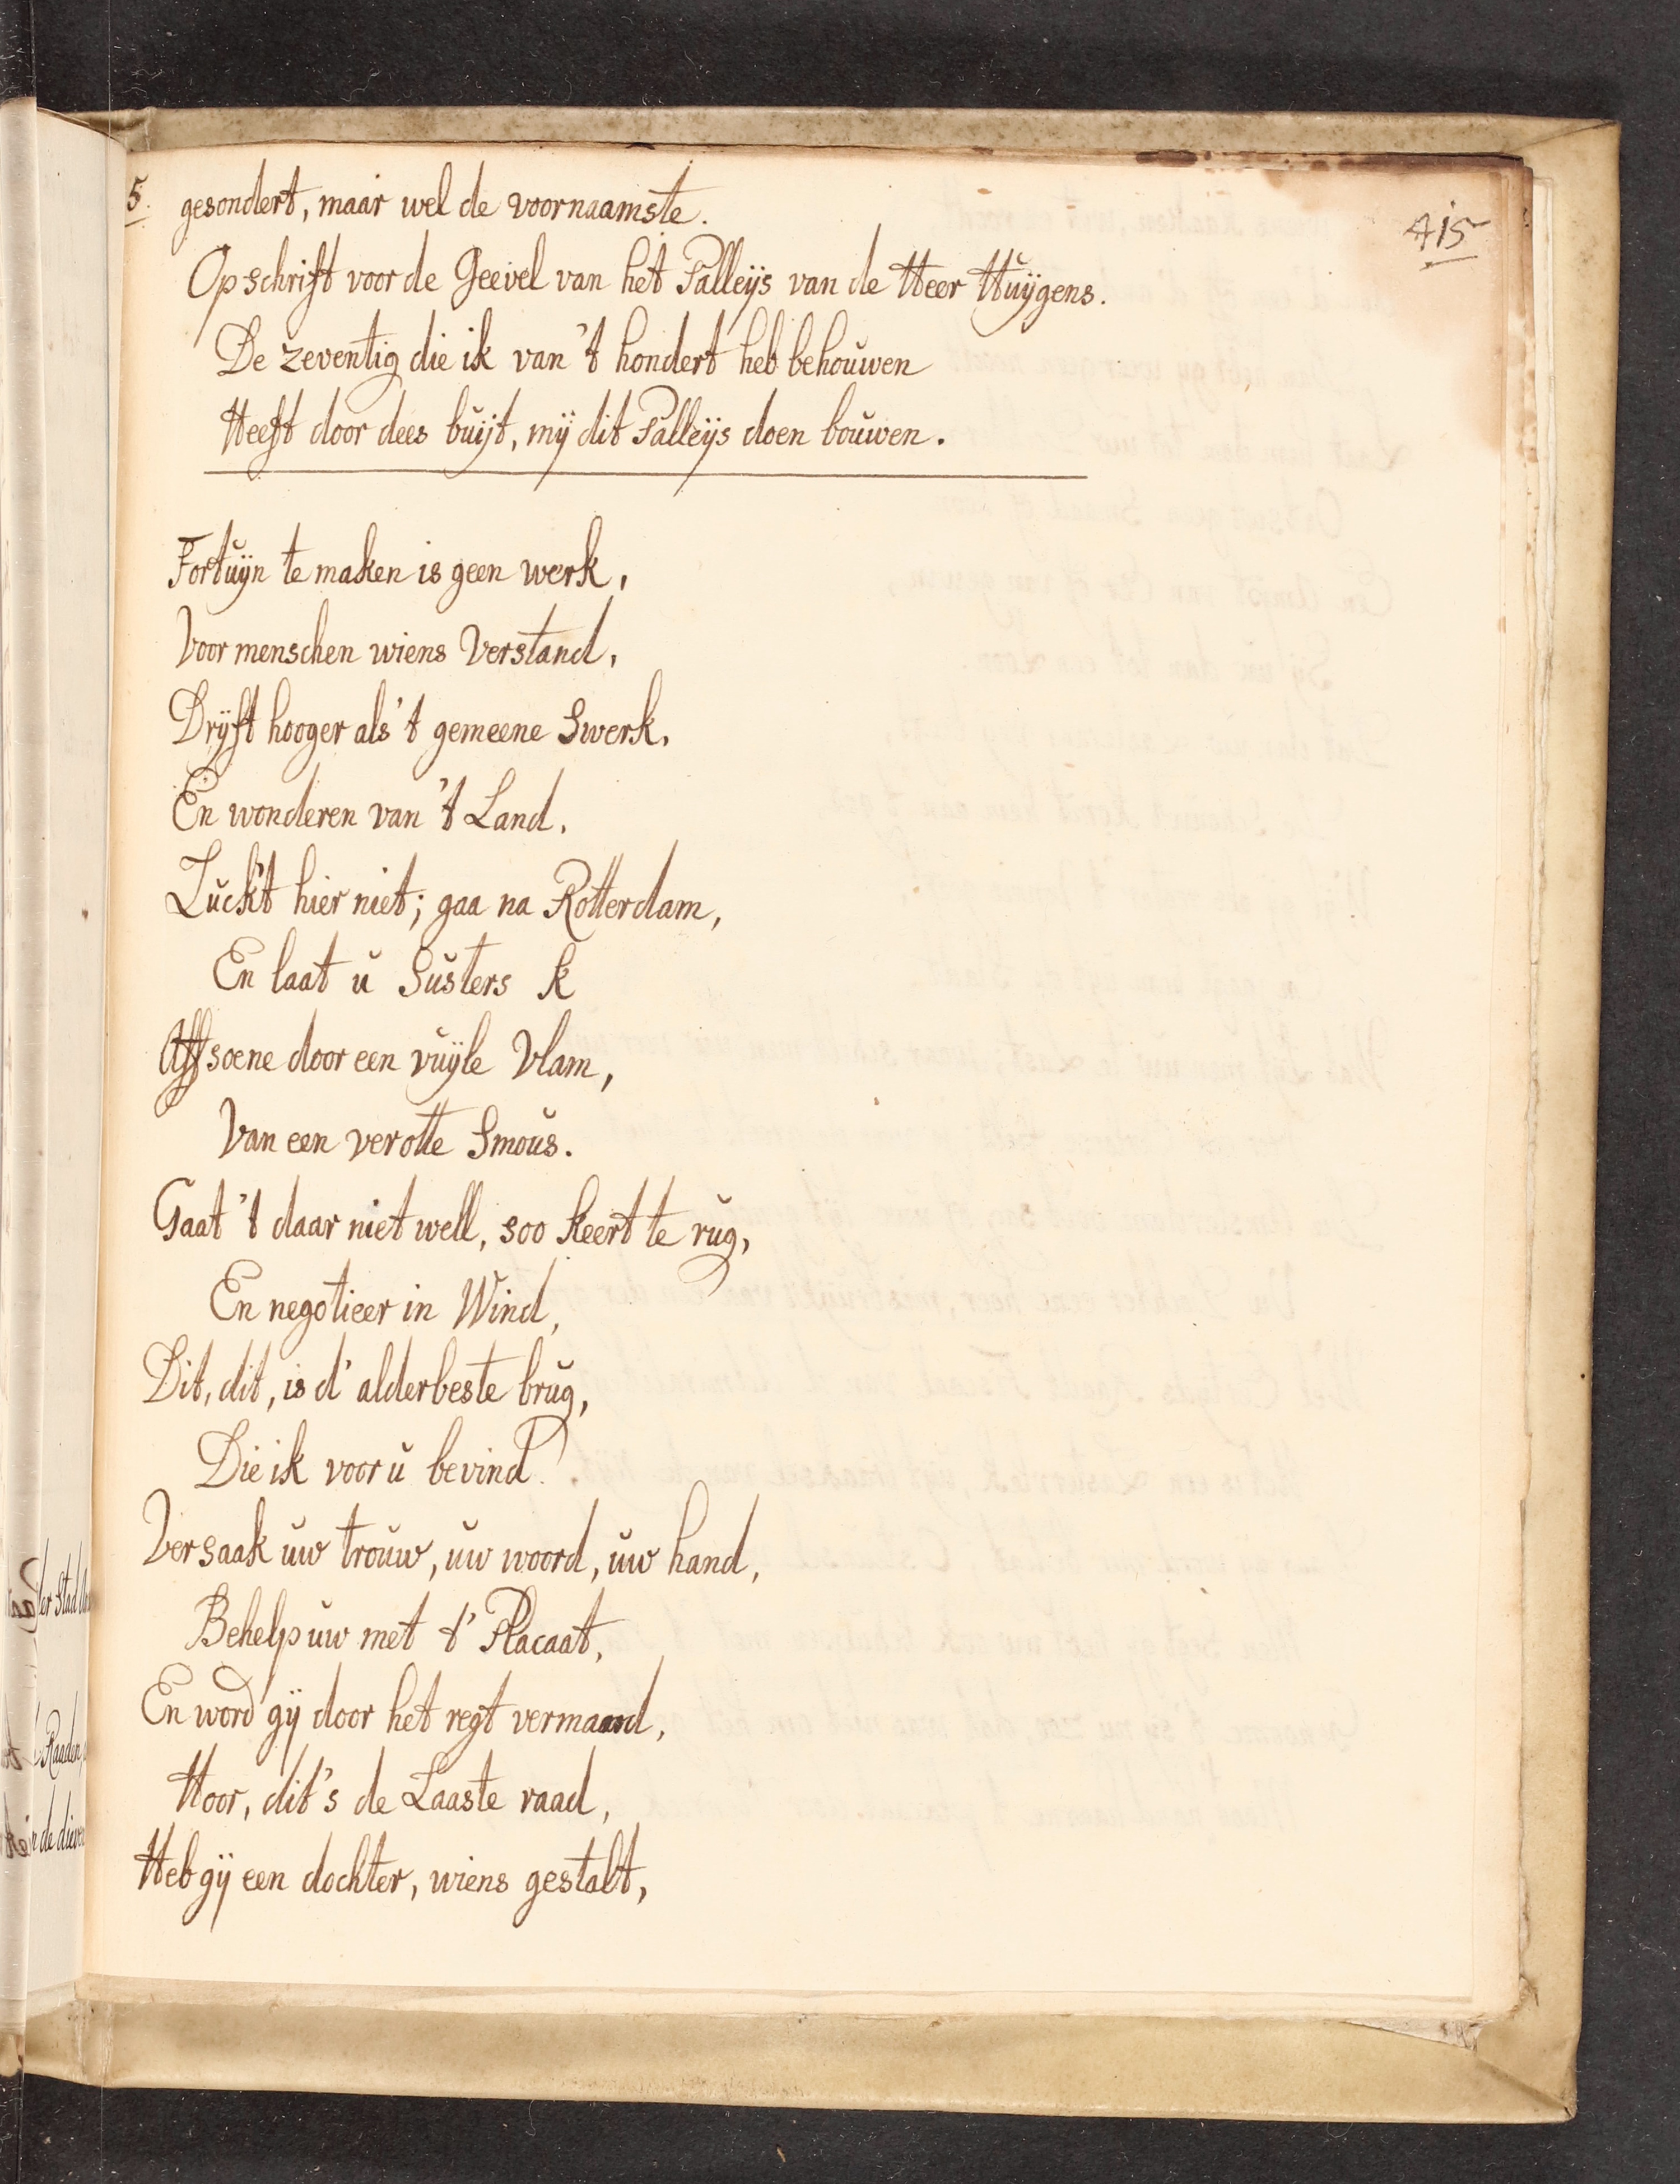 5. gesondert, maar wel de voornaamste.
415
Opschrift voor de Geevel van het Palleijs van de Heer Huijgens.
De zeventig die ik van 't hondert heb behouwen
Heeft door dees buijt, mij dit Palleijs doen bouwen.
Fortuijn te maken is geen werk,
Voor menschen wiens Verstand,
Drijft hooger als 't gemeene Swerk,
En wonderen van 't Land.
Luckt hier niet; gaa na Rotterdam,
En laat u Susters k
Affsoene door een vuijle Vlam,
Van een verotte Smous.
Gaat 't daar niet well, soo keert te rug,
En negotieer in Wind,
Dit, dit, is d' alderbeste brug,
Die ik voor u bevind.
Versaak uw trouw, uw woord, uw hand,
Behelp uw met t' Placaat,
En word gij door het regt vermaand,
Hoor, dit's de Laaste raad,
Heb gij een dochter, wiens gestalt,